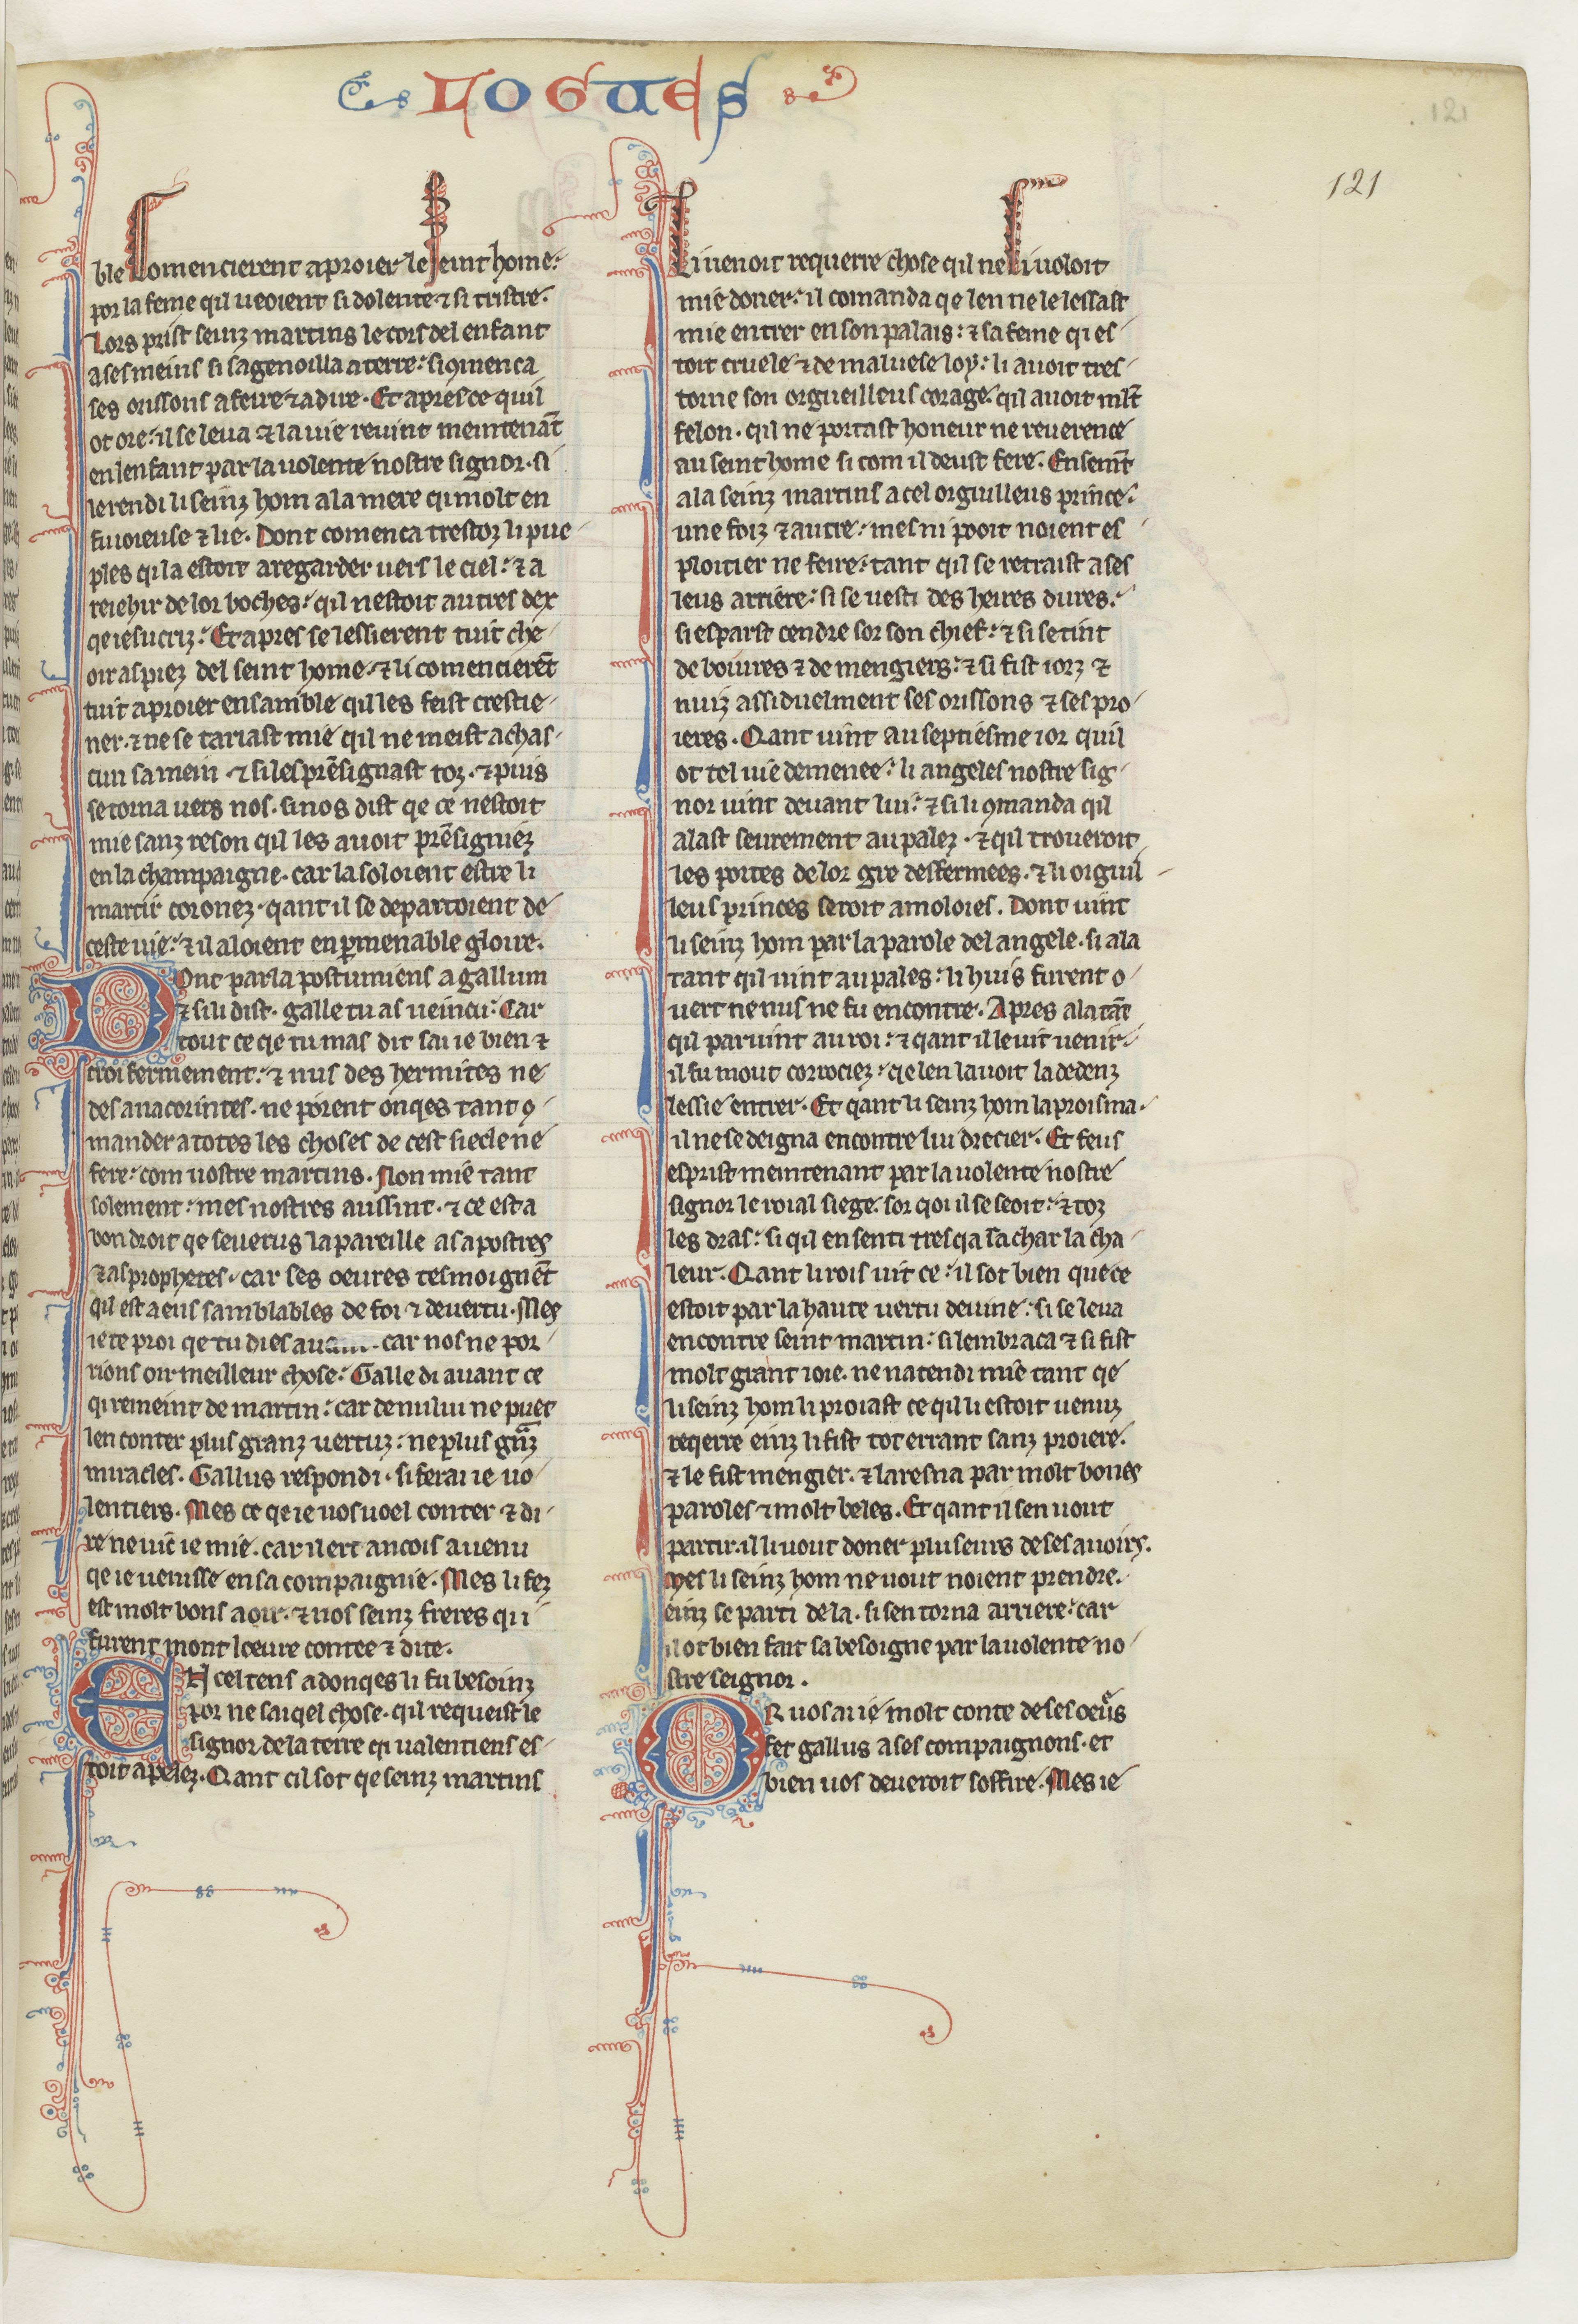 LOGUES
121
121
ble comencierent a proier le seint home.
por la feme qil ueoient si dolente ⁊ si tristre.
Lors prist seinz martins le cors del enfant
a ses meins si sagenoilla a terre. si ꝯmenca
ses orissons a feire ⁊ a dire. Et apres ce quil
ot ore. il se leua ⁊ la uie reuint meintenāt
en lenfant par la uolente nostre signor. si
le rendi li seinz hom a la mere qi molt en
fu ioieuse ⁊ lie. Dont comenca trestoz li pue
ples qi la estoit a regarder uers le ciel. ⁊ a
reiehir de lor boches. qil nestoit autres dex
qe iesucriz. Et apres se lessierent tuit che
oir as piez del seint home. ⁊ li comencierēt
tuit a proier ensamble qil les feist crestie
ner. ⁊ ne se tariast mie qil ne meist a chas
cun sa mein ⁊ si les prēsignast toz. ⁊ puis
se torna uers nos. si nos dist qe ce nestoit
mie sanz reson qil les auoit prēsigniez
en la champaigne. car la soloient estre li
martir coronez. qant il se departoient de
ceste uie. ⁊ il aloient en ꝑmenable gloire.
Dont parla postumiens a gallum
⁊ si li dist. galle tu as ueincu. Car
tout ce qe tu mas dit sai ie bien ⁊
croi fermement. ⁊ nus des hermites ne
des anacorintes. ne porent onqes tant ꝯ
mander a totes les choses de cest siecle ne
fere. com uostre martins. Non mie tant
solement. mes nostres aussint. ⁊ ce est a
bon droit qe seuerus la pareille as apostres
⁊ as prophetes. car ses oeures tesmoignēt
qil est a eus samblables de foi ⁊ de uertu. Mes
ie te proi qe tu dies auant. car nos ne por
rions oir meilleur chose. Galle di auant ce
qi remeint de martin. car de nului ne puet
len conter plus granz uertuz. ne plus gr̄az
miracles. Gallus respondi. si ferai ie uo
lentiers. Mes ce qe ie uos uoel conter ⁊ di
re ne uīt ie mie. car il ert ancois auenu
qe ie uenisse en sa compaignie. Mes li fez
est molt bons a oir. ⁊ nos seinz freres qi i
furent mont loeure contee ⁊ dite.
En cel tens adonqes li fu besoinz
por ne sai qel chose. qil requeist le
signor de la terre qi ualentiens es
toit apelez. Qant cil sot qe seinz martins
li uenoit requerre chose qil ne li uoloit
mie doner. il comanda qe len ne le lessast
mie entrer en son palais. ⁊ sa feme qi es
toit cruele ⁊ de maluese loy. li auoit tres
torne son orgueilleus corage. qil auoit mlt̄
felon. qil ne portast honeur ne reuerence
au seint home si com il deust fere. Ensemt̄
ala seinz martins a cel orguilleus prince.
une foiz ⁊ autre. mes ni pooit noient es
ploitier ne feire. tant qil se retraist a ses
leus arriere. si se uesti des heires dures.
si esparst cendre sor son chief. ⁊ si se tint
de boiures ⁊ de mengiers. ⁊ si fist iorz ⁊
nuiz assiduelment ses orissons ⁊ ses pro
ieres. Qant uint au septiesme ior quil
ot tel uie demenee. li angeles nostre sig
nor uint deuant lui. ⁊ si li ꝯmanda qil
alast seurement au palez. ⁊ qil troueroit
les portes de lor gre desfermees. ⁊ li orguil
leus princes seroit amoloies. Dont uint
li seinz hom par la parole del angele. si ala
tant qil uint au pales. li huis furent o
uert ne nus ne fu encontre. Apres ala tāt
qil paruint au roi. ⁊ qant il le uit uenir.
il fu mout corrociez. qe len lauoit la dedenz
lessie entrer. Et qant li seinz hom laproisma.
il ne se deigna encontre lui drecier. Et feus
esprist meintenant par la uolente nostre
signor le roial siege. sor qoi il se seoit. ⁊ toz
les dras. si qil en senti tresqa sa char la cha
leur. Qant li rois uit ce. il sot bien que ce
estoit par la haute uertu deuine. si se leua
encontre seint martin. si lembraca ⁊ si fist
molt grant ioie. ne natendi mie tant qe
li seinz hom li proiast ce qil li estoit uenuz
reqerre einz li fist tot errant sanz proiere.
⁊ le fist mengier. ⁊ laresna par molt bones
paroles ⁊ molt beles. Et qant il sen uout
partir. il li uout doner pluseurs de ses auoirs.
Mes li seinz hom ne uout noient prendre.
einz se parti de la. si sen torna arriere. car
il ot bien fait sa besoigne par la uolente no
stre seignor.
Or uos ai ie molt conte de ses oeūs
fet gallus a ses compaignons. et
bien uos deueroit soffire. Mes ie